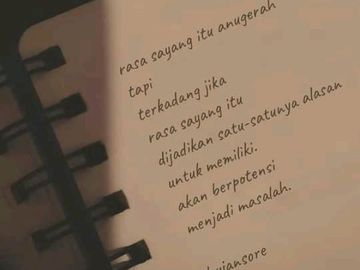 rasa sayang itu anugerah
tapi
terkadang jika
rasa sayang itu
dijadikan satu-satunya alasan
untuk memiliki.
akan berpotensi
menjadi masalah.